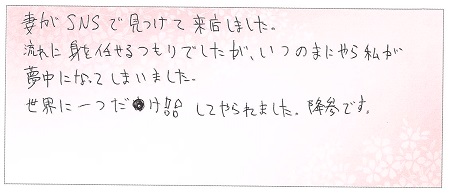 妻がSNSで見つけて来店しました。
流れに身を任せるつもりでしたが、いつのまにやら私が
夢中になってしまいました。
世界に一つだけ品 してやられました。降参です。